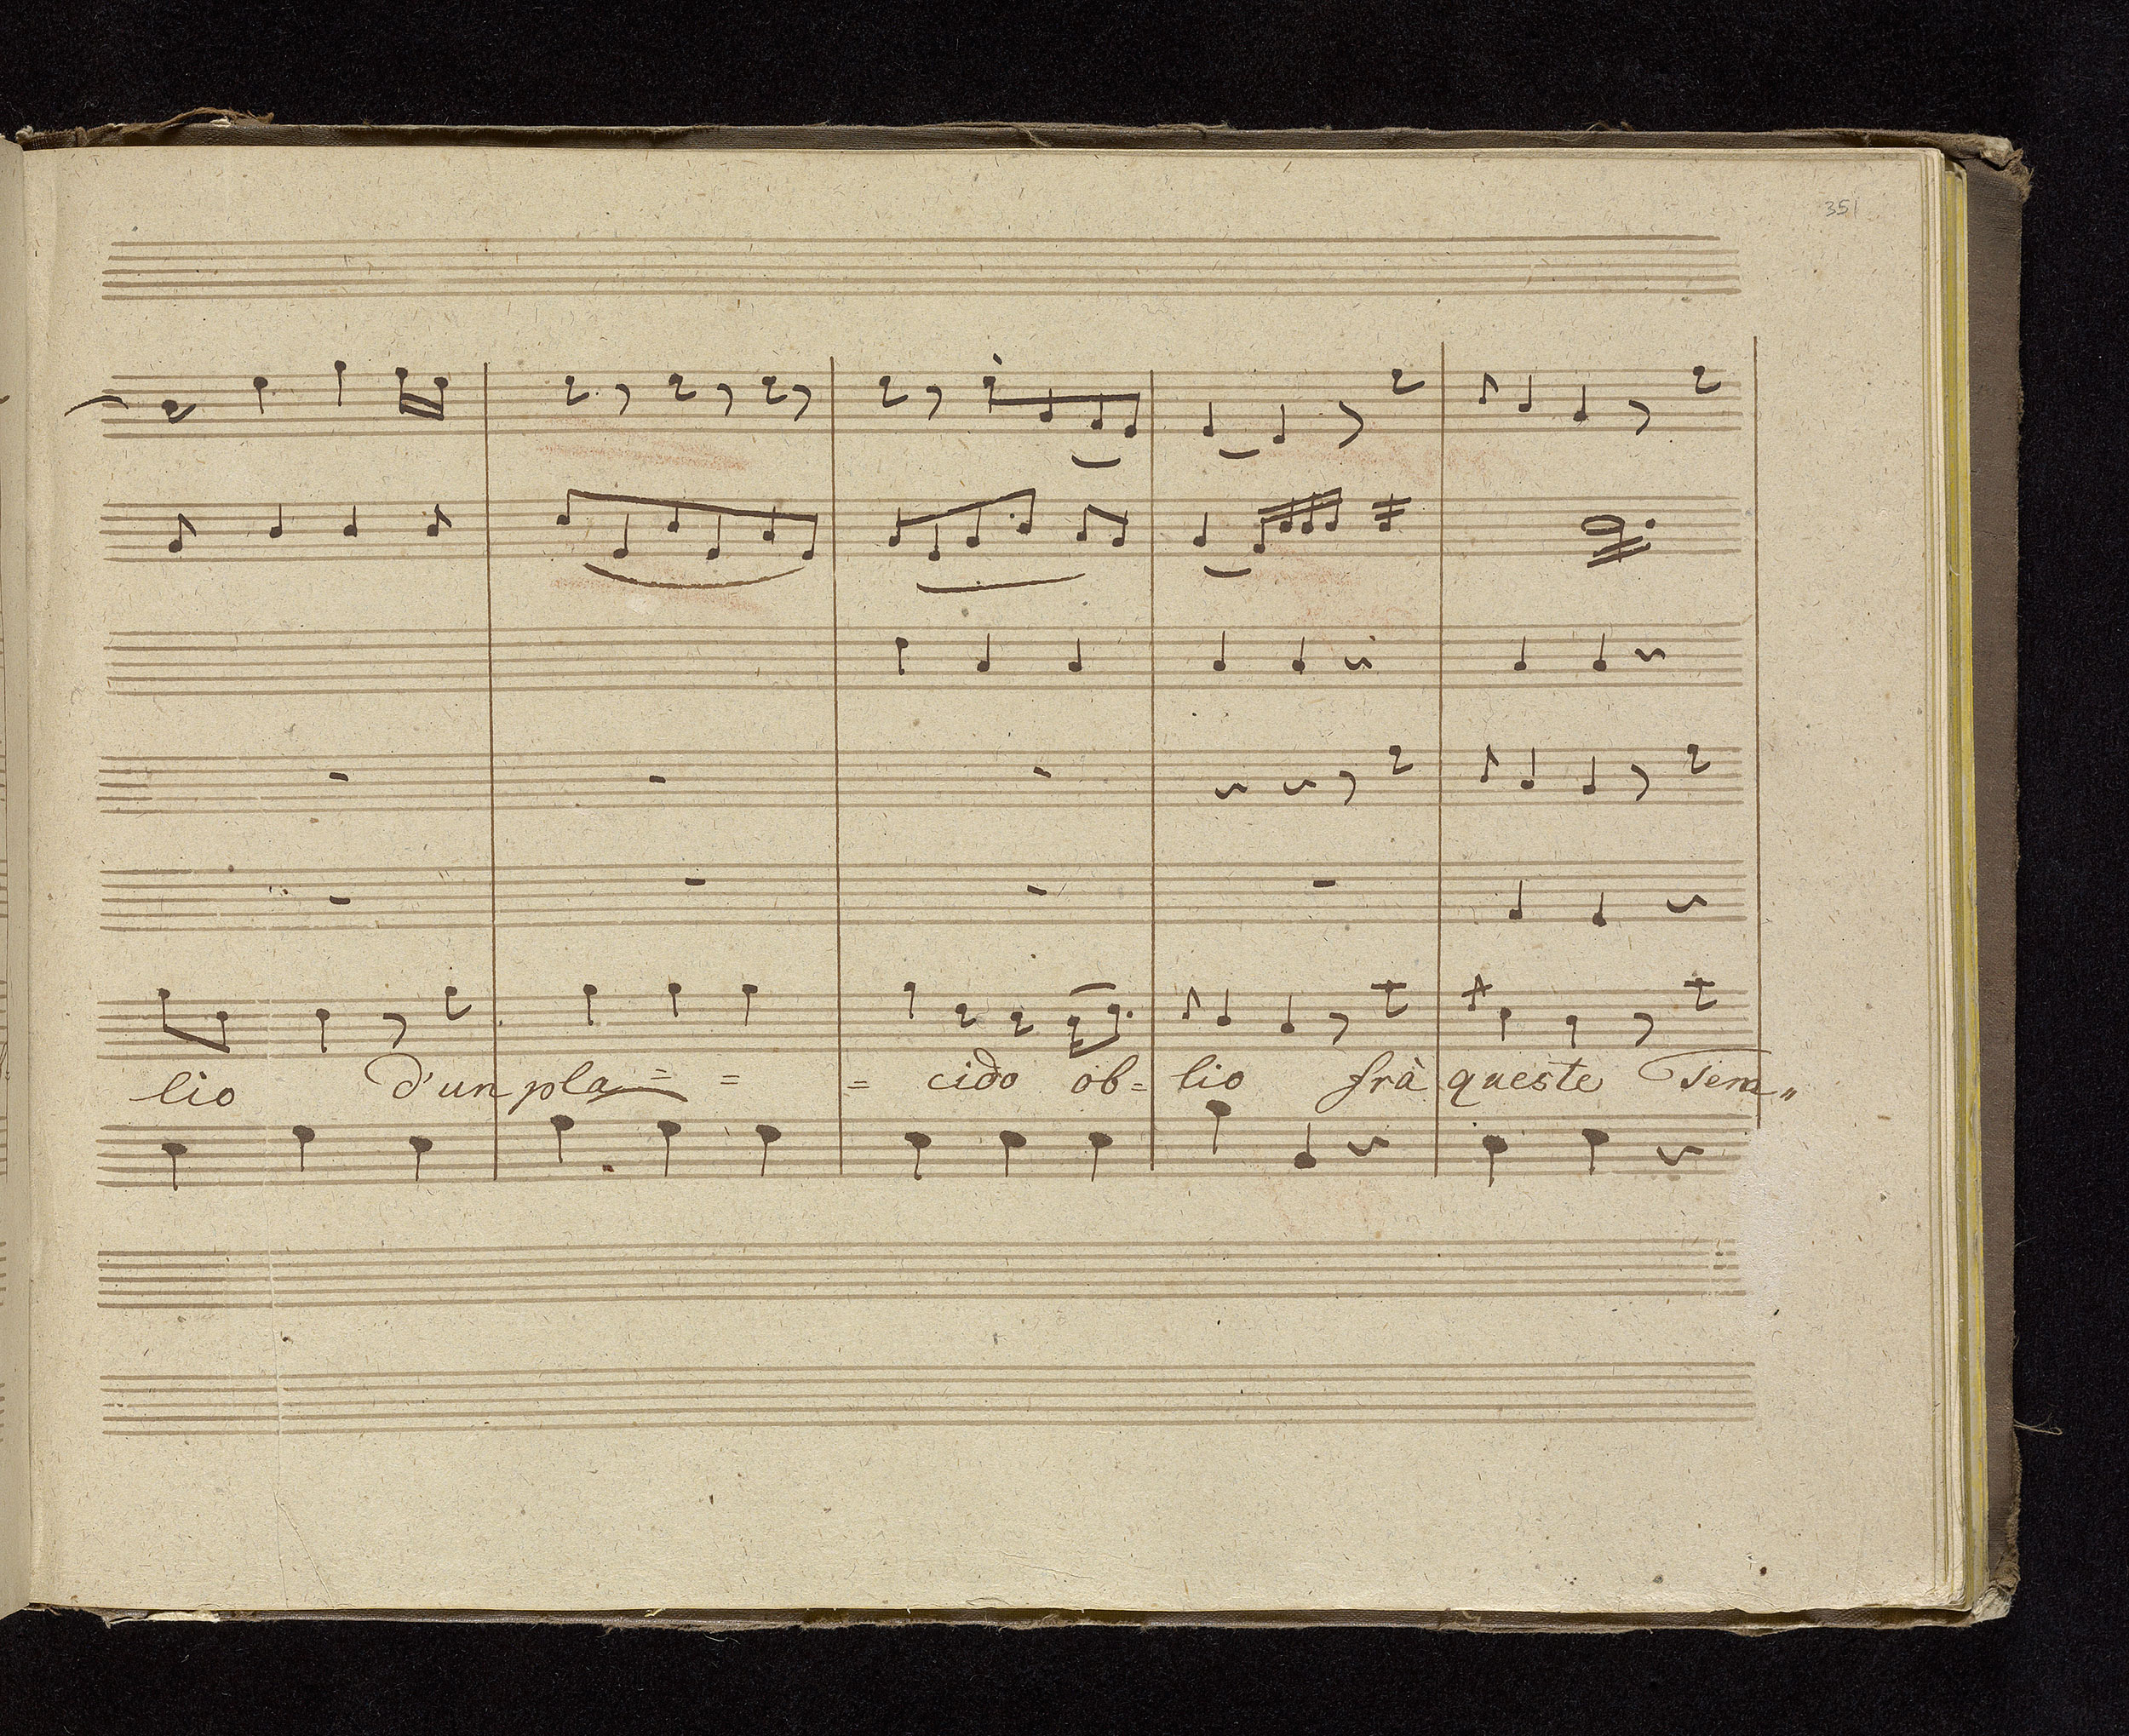 351
lio d'un pla = = = cido ob= lio frà queste Sem„